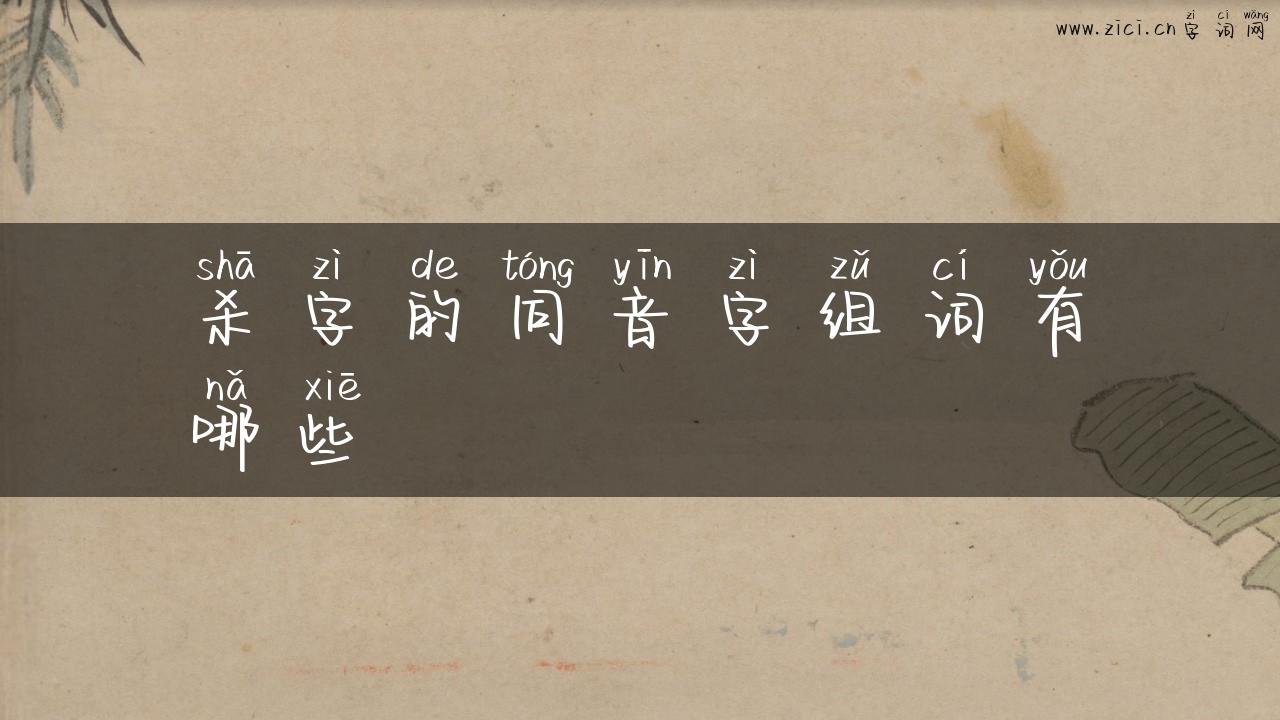 zì cí wǎng
www.zici.cn 字词网
shā zì de tóng yīn zì zǔ cí yǒu
杀字的同音字组词有
nǎ xiē
哪些